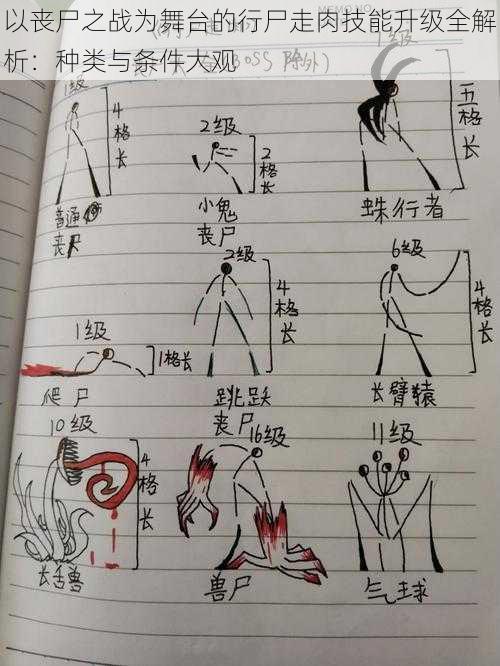 以丧尸之战为舞台的行尸走肉技能升级全解
析：种类与条件大观
MEMO NO.
BOSS 除外)
1级
4格长
普通
丧尸
2级
2格长
小鬼
丧尸
五格长
蛛行者
1级
1格长
爬尸
2级
4格长
跳跃
丧尸
6级
4格长
长臂猿
10级
4格长
长舌兽
16级
兽尸
11级
气球